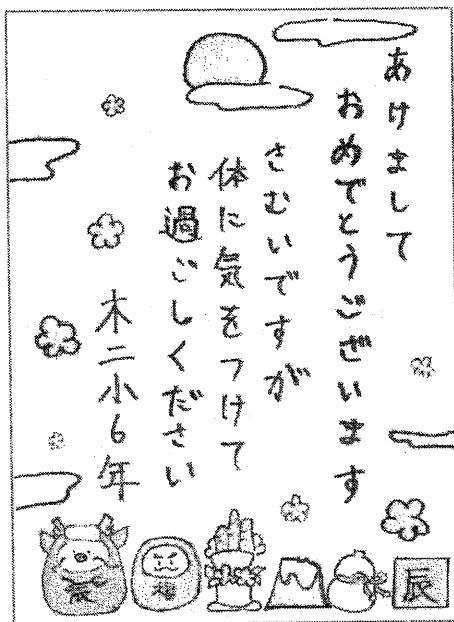 あけまして
おめでとうございます
さむいですが
体に気をつけて
お過ごしください
木二小6年
辰
福
辰